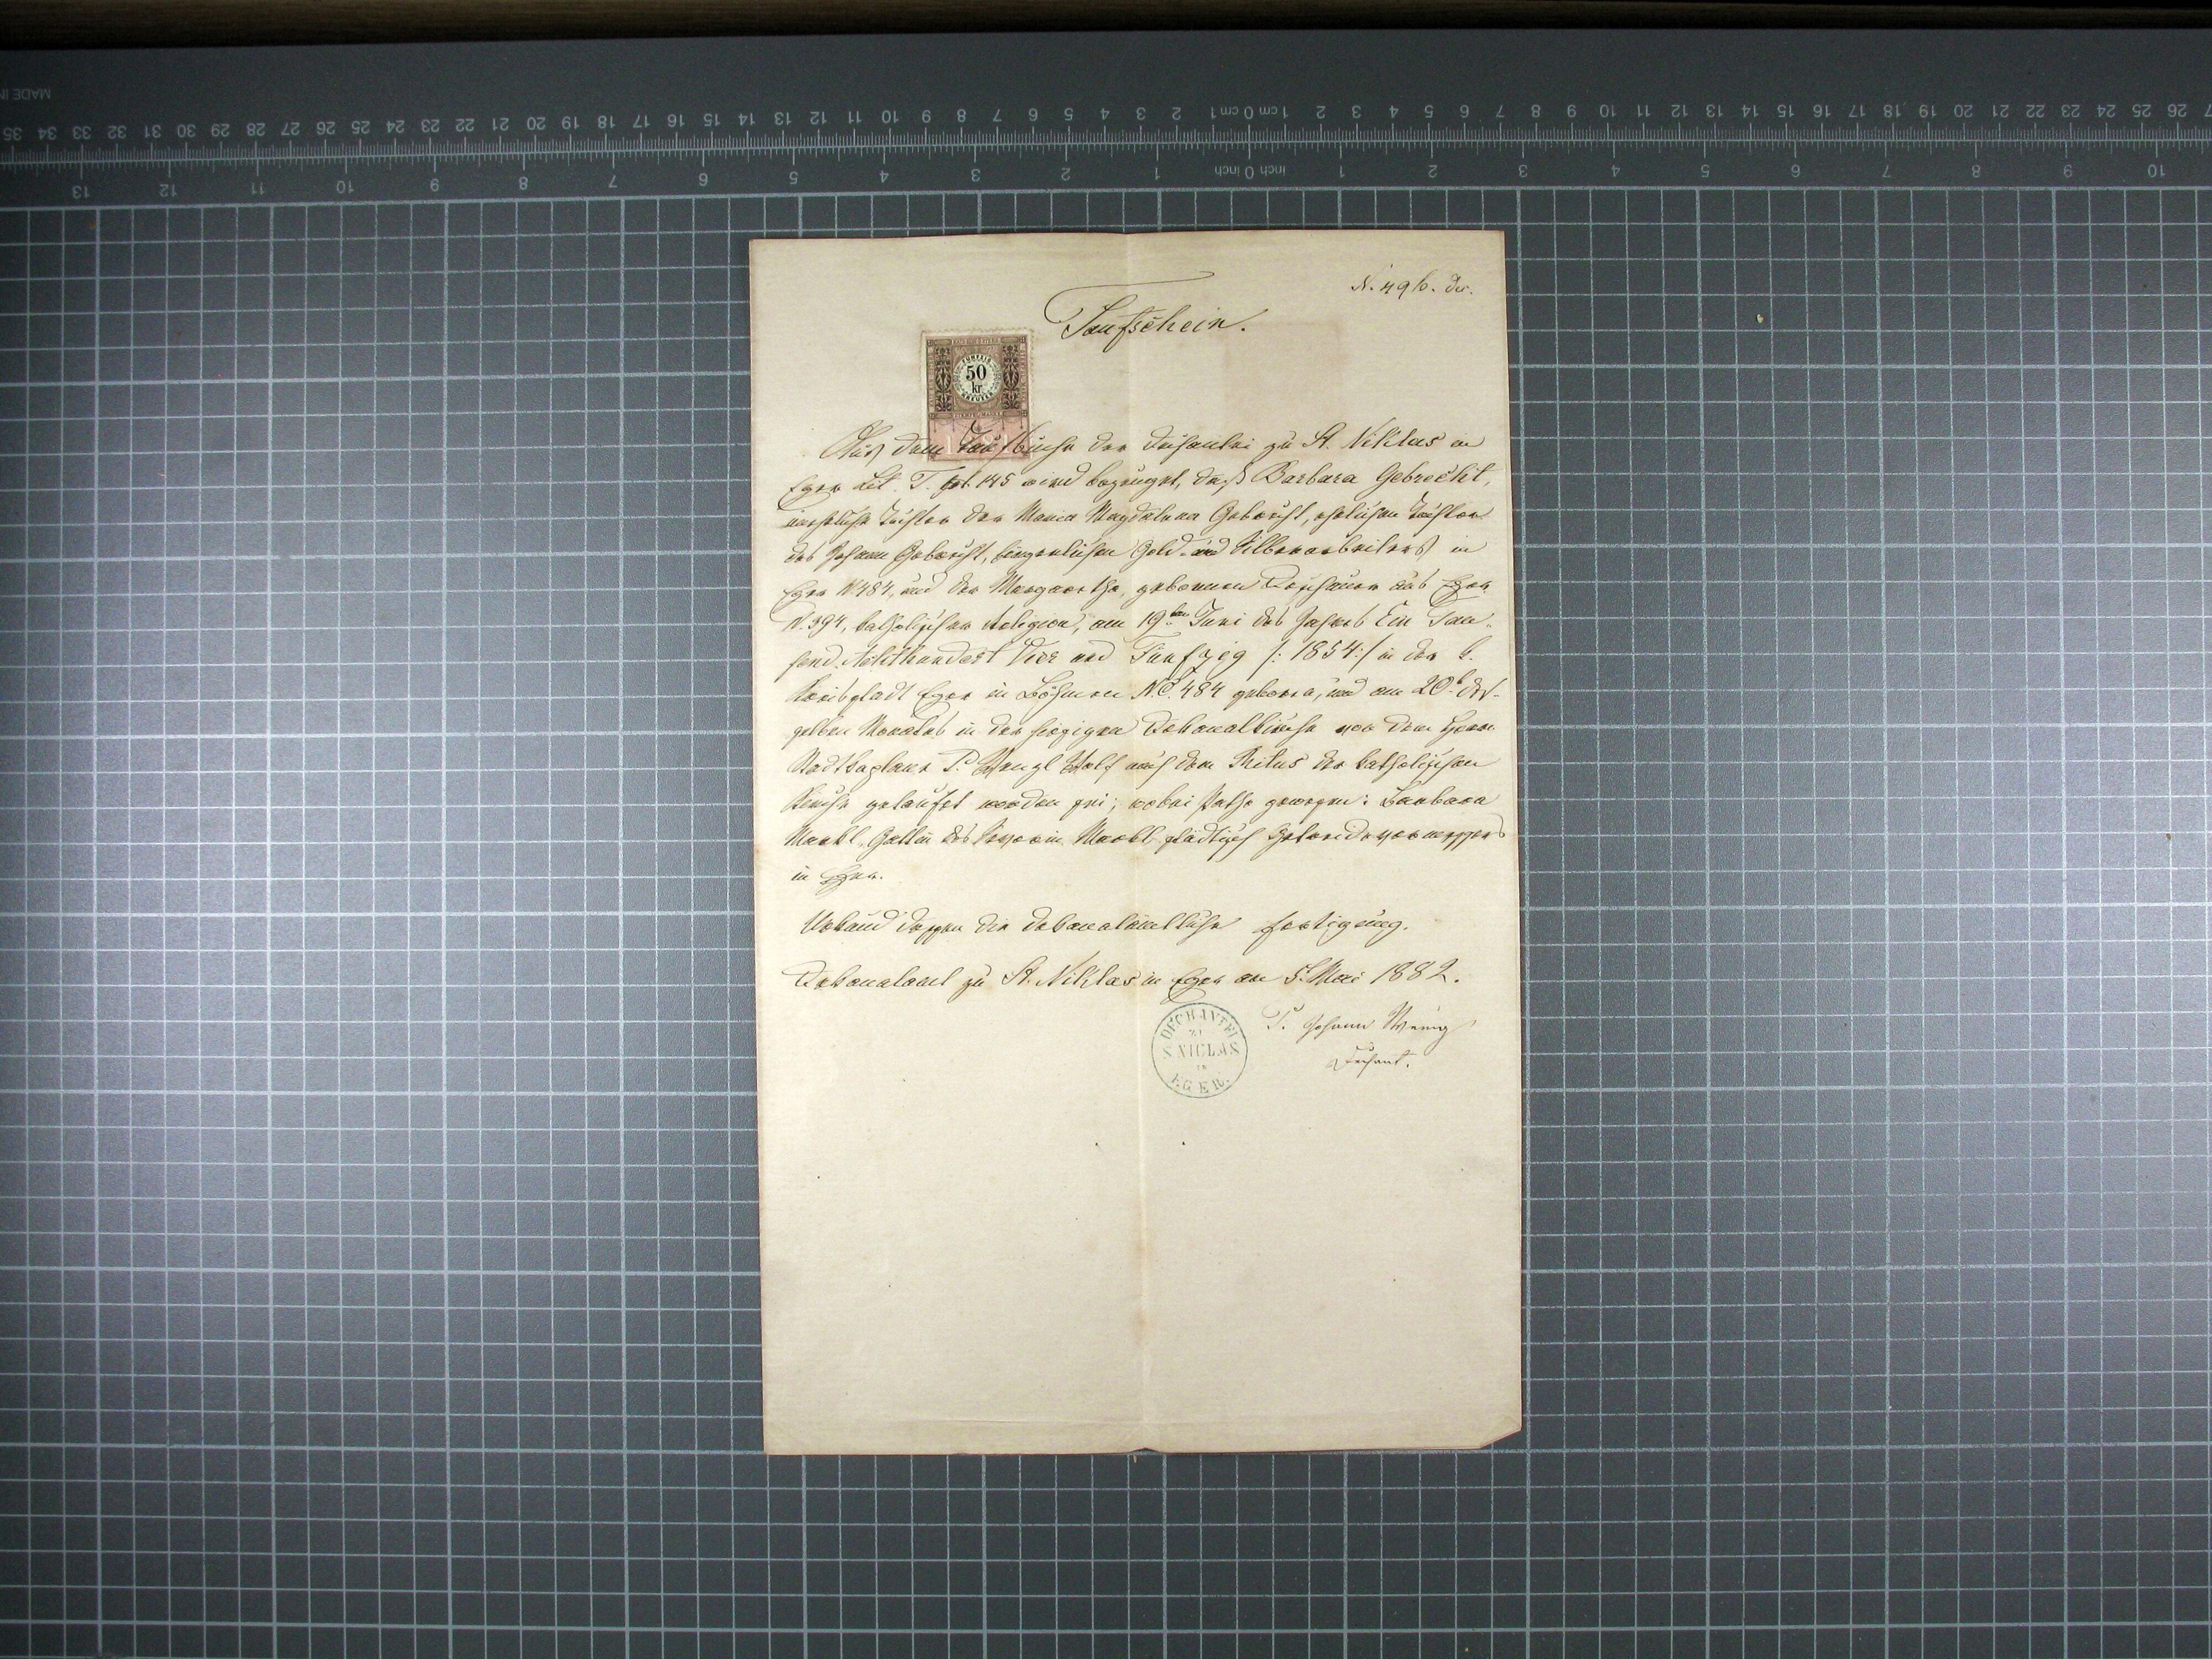 MADE IN
35 34 33 32 31 30 29 28 27 26 25 24 23 22 21 20 19 18 17 16 15 14 13 12 11 10 9 8 7 6 5 4 3 2 1 cm 0 cm 1 2 3 4 5 6 7 8 9 10 11 12 13 14 15 16 17 18 19 20 21 22 23 24 25 26
13 12 11 10 9 8 7 6 5 4 3 2 1 inch 0 inch 1 2 3 4 5 6 7 8 9 10
N. 496.
Taufschein.
50
kr.
Aus dem Taufbuche der Dechantei zu St. Niklas in
Eger Lit. T. fol. 145 wird bezeuget, daß Barbara Gebrecht,
uneheliche Tochter der Maria Magdalena Gebrecht, ehelichen Tochter
des Johann Gebrecht, bürgerlichen Gold- und Silberarbeiters in
Eger N 484, und der Margaretha, gebornen aus Eger
N. 394, katholischer Religion, am 19ten Juni des Jahres Ein Tau-
send Achthundert Vier und Fünfzig /: 1854 :/ in der k.
Kreisstadt Eger in Böhmen N.C. 484 geboren, und am 20t. des-
selben Monates in der hiesigen Dekanalkirche von dem Herrn
Stadtkaplane P. Wenzl Wolf nach dem Ritus der katholischen
Kirche getaufet worden sei; wobei Pathe gewesen: Barbara
Markl, Gattin des Markl, städtisch
in Eger.
Urkund dessen die dekanalämtliche Fertigung.
Dekanalamt zu St. Niklas in Eger am 5. Mai 1882.
DECHANTEI
ZU
S NICLAS
IN
EGER.
P. Johann
Dechant.